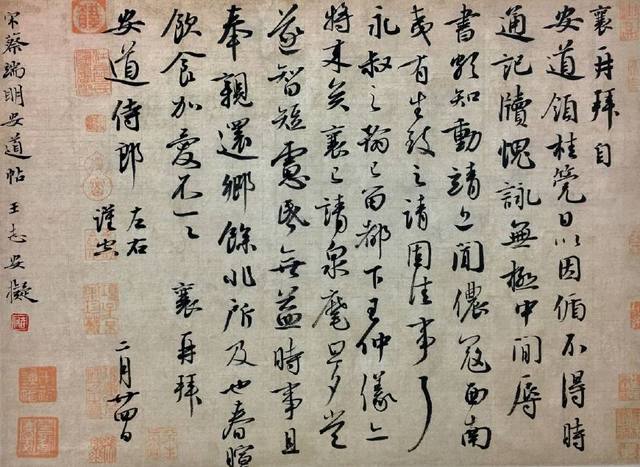 襄再拜自
安道領桂筦日以因循不得時
通記牘愧詠無極中間辱
書頗知動靖近聞儂寇西南
夷有生致之請固佳事
永叔之翰已留都下王仲儀亦
將来矣襄已請泉麾旦夕當
遂智短慮昬無益時事且
奉親還鄉餘非所及也春暄
飲食加愛不一一 襄再拜
安道侍郎 左右
謹空
二月廿四日
宋蔡端明安道帖 王志安擬